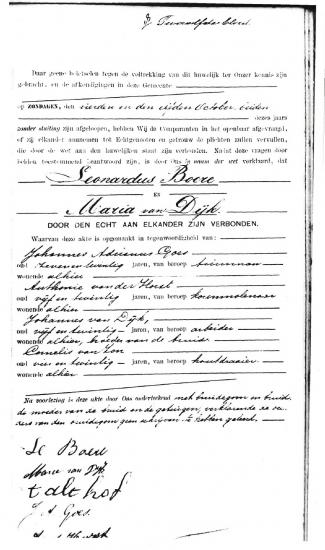 Daar geene beletselen tegen de voltrekking van dit huwelijk ter Onzer kennis zijn
gebracht, en de afkondigingen in deze Gemeente
op ZONDAGEN, den vierden en den elfden October, beiden
dezes jaars
zonder stuiting zijn afgeloopen, hebben Wij de Comparanten in het openbaar afgevraagd,
of zij elkander aannemen tot Echtgenooten en getrouw de plichten zullen vervullen,
die door de wet aan den huwelijken staat zijn verbonden. Nadat deze vragen door
beiden toestemmend beantwoord zijn, is door Ons in naam der wet verklaard, dat
Leonardus Boere
EN
Maria van Dijk
DOOR DEN ECHT AAN ELKANDER ZIJN VERBONDEN.
Waarvan deze akte is opgemaakt in tegenwoordigheid van:
Johannes Adrianus Goes
oud zevenentwintig jaren, van beroep tuinman
wonende alhier
Anthonie van der Horst
oud vijf en twintig jaren, van beroep korenmolenaar
wonende alhier
Johannes van Dijk,
oud vijf en twintig jaren, van beroep arbeider
wonende alhier, broeder van de bruid
Cornelis van
oud vier en twintig jaren, van beroep houtdraaier
wonende alhier
Na voorlezing is deze akte door Ons onderteekend met bruidegom en bruid
de moeder van de bruid en de getuigen, verklarende de va-
ders van den bruidegom geen schrijven te hebben geleerd.
L Boere
Marie van Dijk
t alt hof
J A Goes